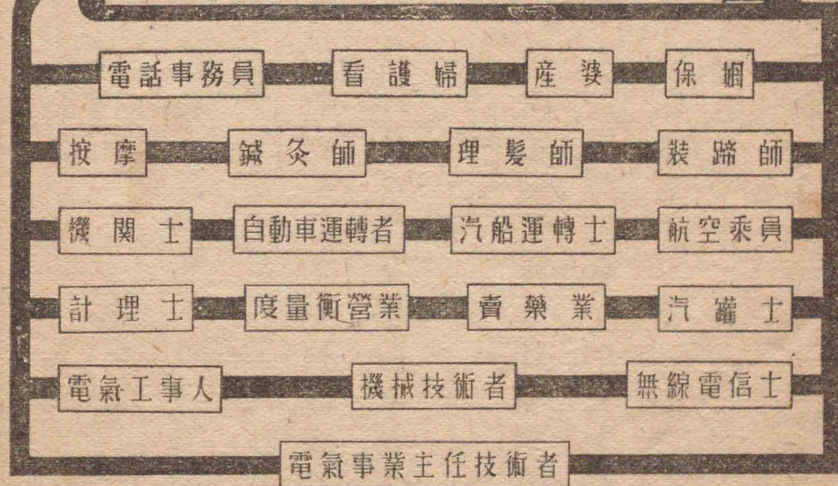 電話事務員 看護婦 産婆 保姆
按摩 鍼灸師 理髪師 装蹄師
機関士 自動車運轉者 汽船運轉士 航空乘員
計理士 度量衡營業 賣藥業 汽罐士
電氣工事人 機械技術者 無線電信士
電氣事業主任技術者